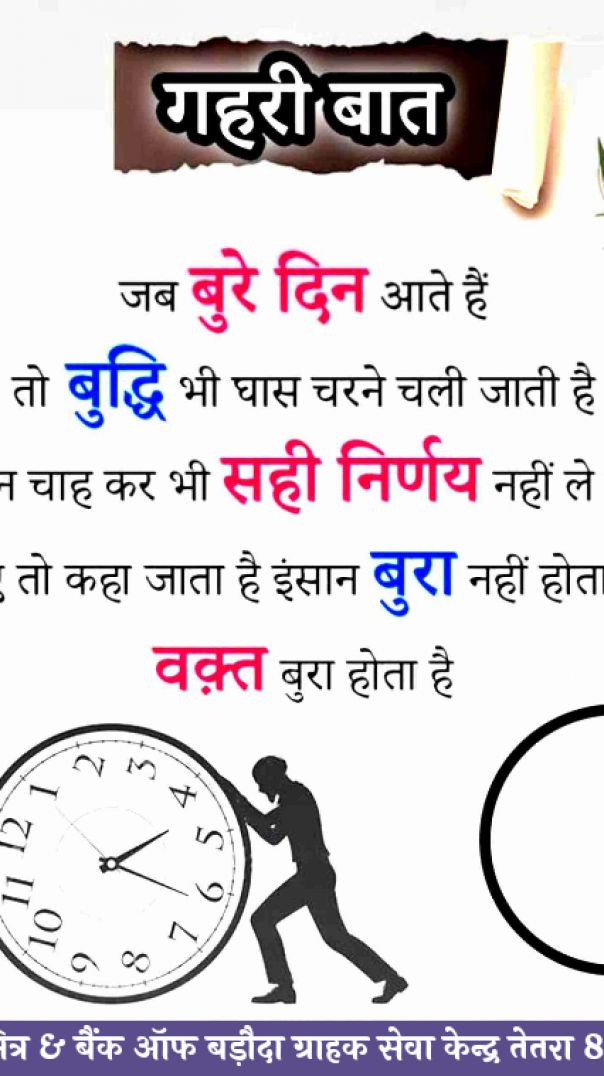 गहरी बात
जब बुरे दिन आते हैं
तो बुद्धि भी घास चरने चली जाती है
चाह कर भी सही निर्णय नहीं ले
तो कहा जाता है इंसान बुरा नहीं होता
वक़्त बुरा होता है
1 2 3 4 5 6 7 8 9 10 11 12
& बैंक ऑफ बड़ौदा ग्राहक सेवा केन्द्र तेतरा 8